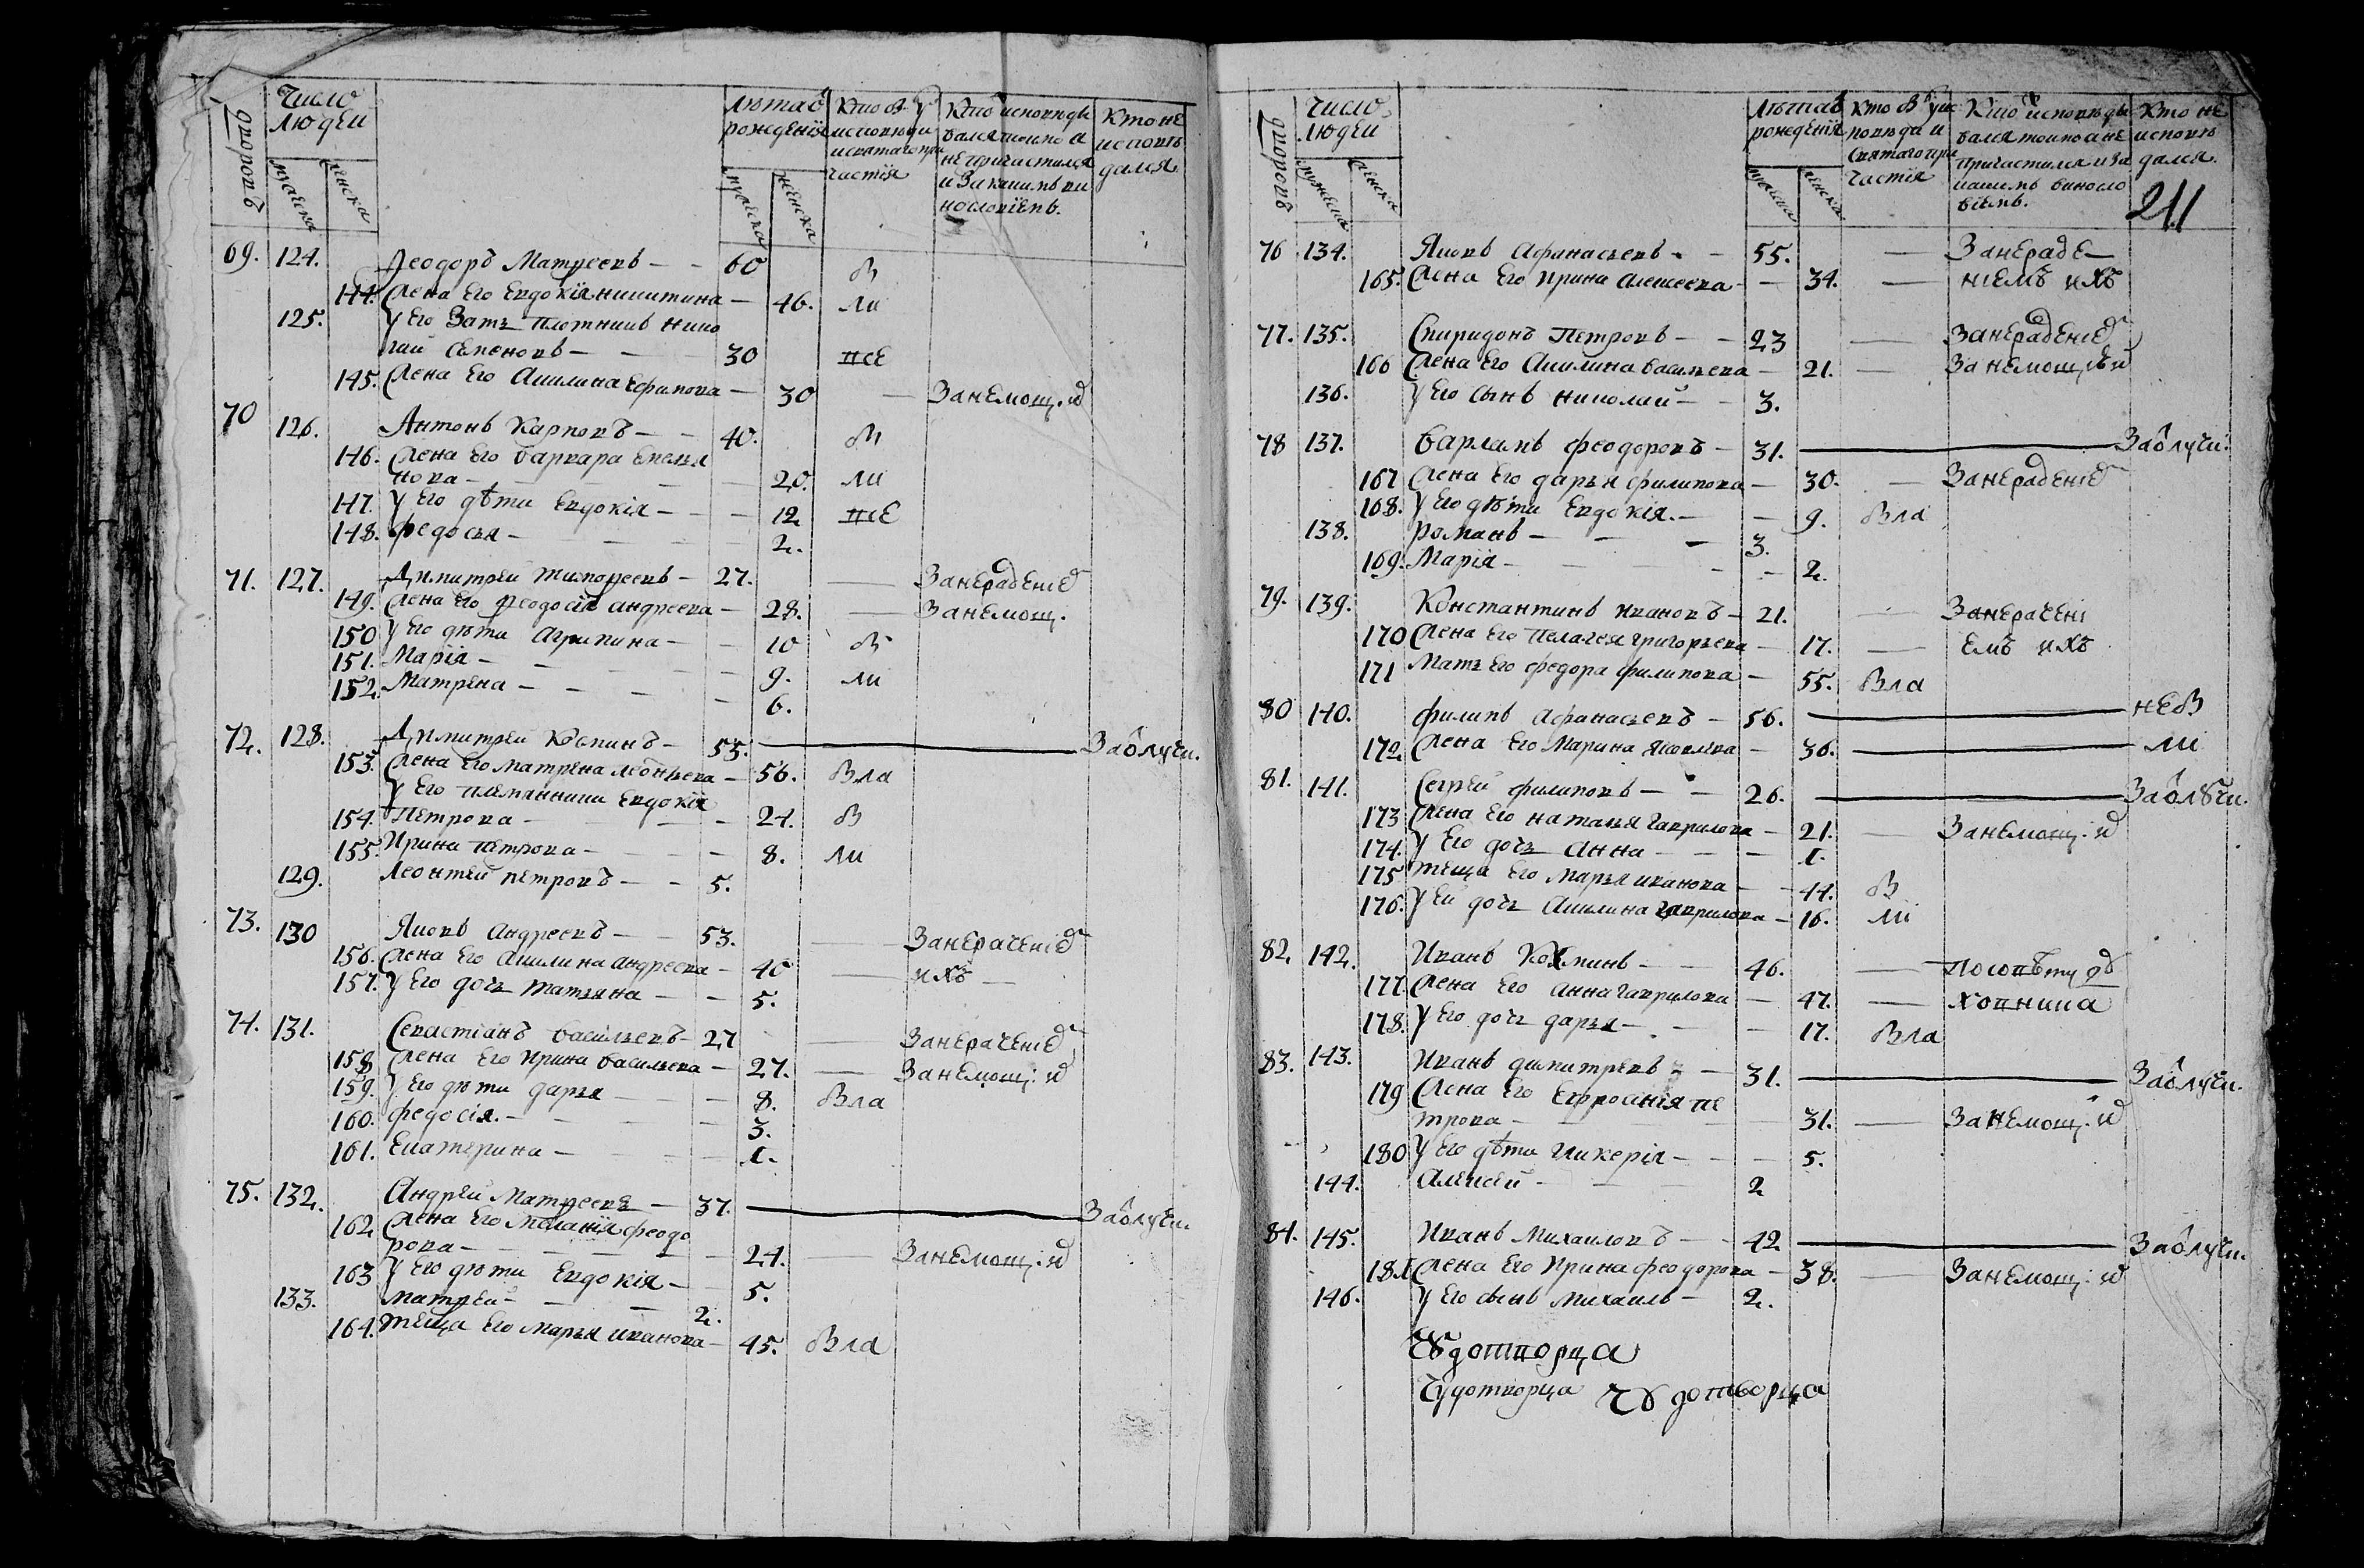 число людей
дворовъ
мужеска
женска
лѣта ѿ рожденїя
мужеска
женска
Кто былъ у исповѣди и святаго причастїя
Кто исповѣдывался токмо а не причастился и за какимъ винословїемъ.
Кто не исповѣдался
69. 124. Феодоръ Матфеевъ — 60 б
144. Жена его Евдокїя никитина — 46. ли
125. у его зать плотникъ нико
лай семеновъ — 30 всѣ
145. Жена его Акилина Ефимова — 30 — за немощ. и
70 126. Антонъ Карповъ — 40. бы
146. Жена его варвара Емелья
нова — 20. ли
147. у его дѣти Евдокїя — 12 всѣ
148. федосья — 2.
71. 127. Димитрей тимофеевъ — 27. — за нераденїе
149. Жена его феодосїя андреева — 28. — за немощ.
150 у его дѣти Агрипина — 10 бы
151. Марїя — 9. ли
152. Матрена — 6.
72. 128. Димитрей Козминъ — 55. — за отлучи.
153. Жена его матрена леонтьева — 56. была
у его племянницы Евдокїя
154. Петрова — 24. бы
155. Ирина петрова — 8. ли
129. Леонтей петровъ — 5.
73. 130 Яковъ Андреевъ — 53. — за нераченїе
156. Жена его Акилина андреева — 40 — ихъ
157. у его дочь татьяна — 5.
74. 131. Севастїанъ васильевъ — 27 — за нераченїе
158 Жена его Ирина васильева — 27. — за немощ. и
159. у его дѣти дарья — 8. была
160. федосїя. — 3.
161. Екатерина — 1.
75. 132. Андрей Матфеевъ — 37. — за отлучи.
162 Жена его Меланїя феодо
рова — 24. за немощ. и
163 у его дѣти Евдокїя — 5.
133. матфей — 2.
164. теща его марья иванова — 45. была
число людей
дворовъ
мужеска
женска
лѣта ѿ рожденїя
мужеска
женска
Кто былъ у исповѣди и святаго причастїя
Кто исповѣдывался токмо а не причастился и за какимъ винословїемъ.
Кто не исповѣдался.
211
76 134. Яковъ Афанасьевъ — 55. — за нераде
165. Жена его Ирина Алексеева — 34. — нїемъ ихъ
77. 135. Спиридонъ Петровъ — 23 — за нераденїе
166 Жена его Акилина васильева — 21. — за немощїю
136. у его сынъ николай — 3.
78 137. варламъ феодоровъ — 31. — за отлучи.
167 Жена его дарья филипова — 30. — за нераденїе
168. у его дѣти Евдокїя. — 9. была
138. романъ — 3.
169. Марїя — 2.
79. 139. Константинъ ивановъ — 21. — за нерачені
170 Жена его Пелагея григорьева — 17. — емъ ихъ
171 Мать его федора филипова — 55. была
80 140. филипъ афанасьевъ — 56. — не бы
172 Жена его Марина яковлева — 36. — ли
81. 141. Сергей филиповъ — 26. — за отлучи.
173 Жена его наталья гаврилова — 21. — за немощ. и
174. у его дочь Анна — 1.
175 теща его марья иванова — 44. бы
176. у ей дочь Акилина гаврилова — 16. ли
82 142. Иванъ Козминъ — 46. — по совѣту дȣ
177. Жена его анна гаврилова — 47. — ховника
178. у его дочь дарья — 17. была
83. 143. Иванъ димитревъ — 31. — за отлучи.
179 Жена его Ефросинїя пе
трова — 31. — за немощ. и
180 у его дѣти гликерїя — 5.
144. Алексей — 2
84. 145. Иванъ Михаиловъ — 42. — за отлучи.
181 Жена его Ирина феодорова — 38. — за немощ. и
146. у его сынъ михаилъ — 2.
Чȣдотворца
Чудотворца Чȣдотворца